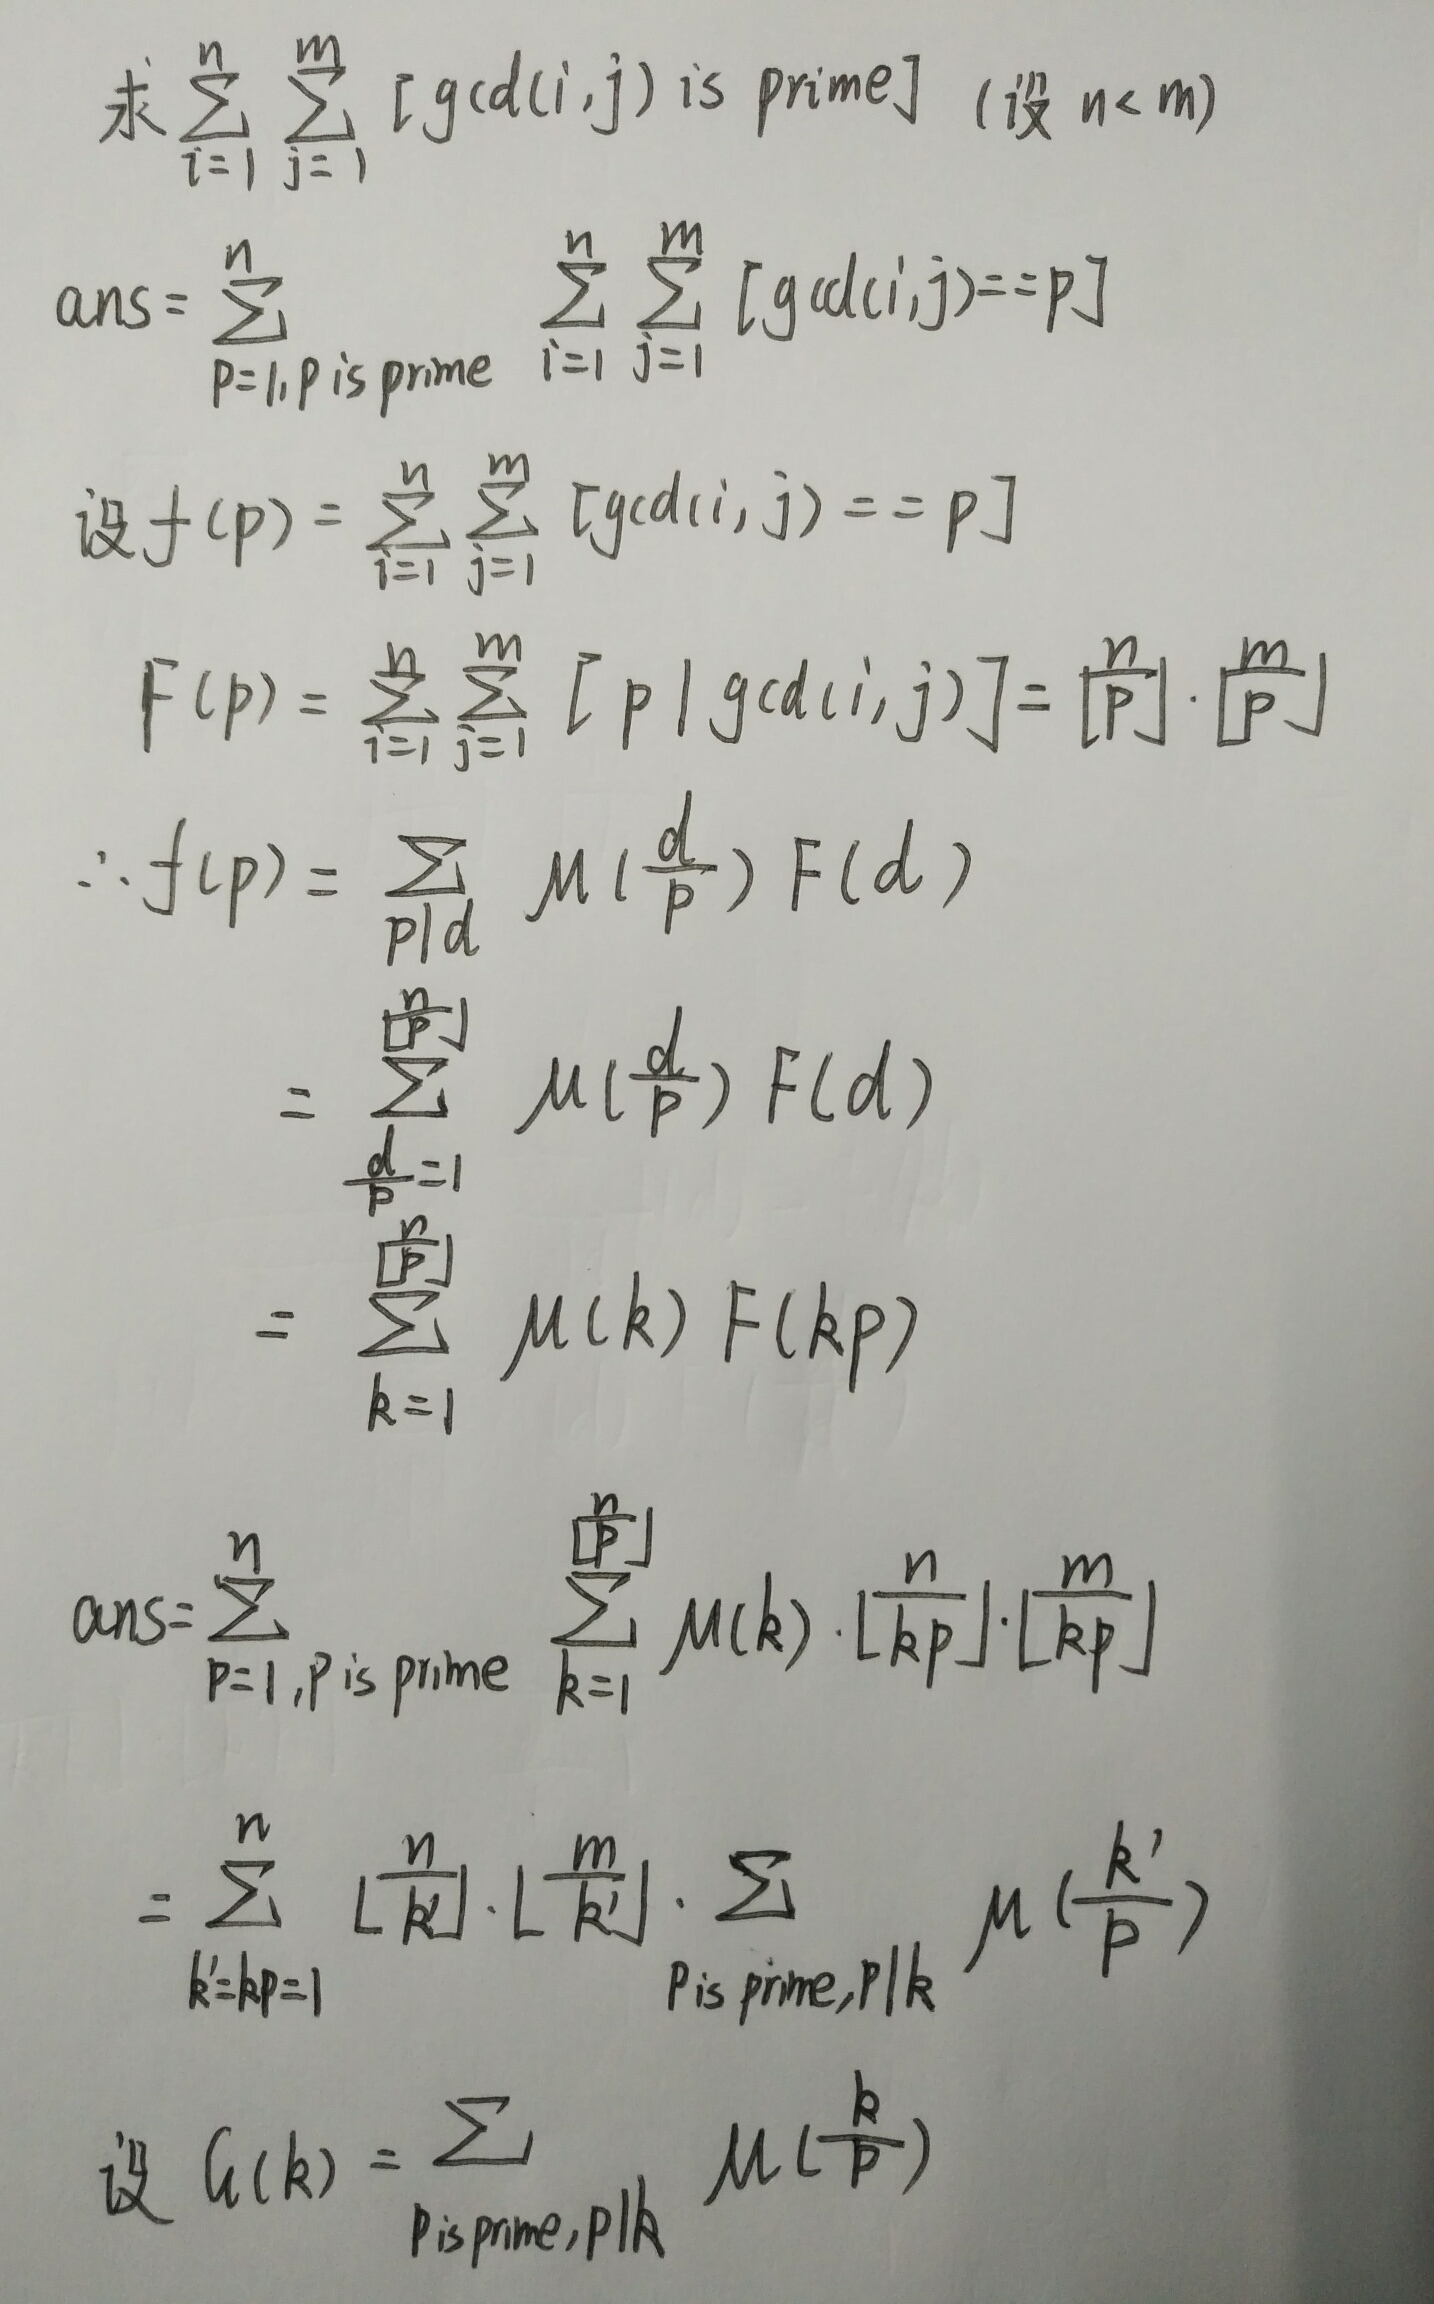 求 $\sum_{i=1}^{n} \sum_{j=1}^{m} [gcd(i,j) is prime]$ (设 n<m)
ans= $\sum_{p=1, p is prime}^{n} \sum_{i=1}^{n} \sum_{j=1}^{m} [gcd(i,j)==p]$
设 $f(p) = \sum_{i=1}^{n} \sum_{j=1}^{m} [gcd(i,j)==p]$
$F(p) = \sum_{i=1}^{n} \sum_{j=1}^{m} [p | gcd(i,j)] = \lfloor \frac{n}{p} \rfloor \cdot \lfloor \frac{m}{p} \rfloor$
$\therefore f(p) = \sum_{p|d} \mu(\frac{d}{p}) F(d)$
$= \sum_{\frac{d}{p}=1}^{\lfloor \frac{n}{p} \rfloor} \mu(\frac{d}{p}) F(d)$
$= \sum_{k=1}^{\lfloor \frac{n}{p} \rfloor} \mu(k) F(kp)$
ans= $\sum_{p=1, p is prime}^{n} \sum_{k=1}^{\lfloor \frac{n}{p} \rfloor} \mu(k) \cdot \lfloor \frac{n}{kp} \rfloor \cdot \lfloor \frac{m}{kp} \rfloor$
$= \sum_{k'=kp=1}^{n} \lfloor \frac{n}{k'} \rfloor \cdot \lfloor \frac{m}{k'} \rfloor \cdot \sum_{p is prime, p|k} \mu(\frac{k'}{p})$
设 $G(k) = \sum_{p is prime, p|k} \mu(\frac{k}{p})$